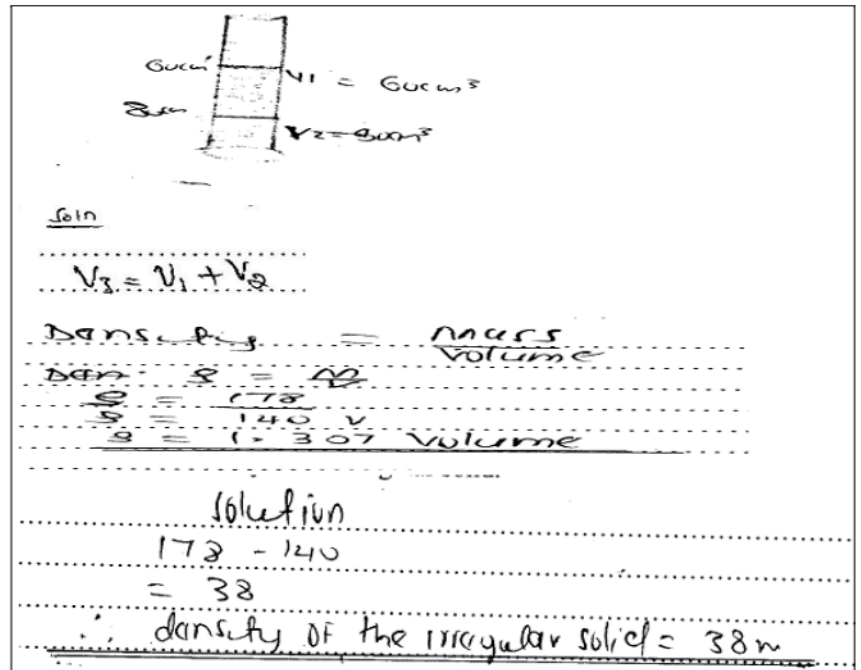 60cm³ V1 = 60cm³
80cm V2 = 80cm³
Soln
V3 = V1 + V2
Density = mass
Volume
Den: ρ = m/v
ρ = 178
ρ = 140 v
ρ = 1.307 Volume
Solution
178 - 140
= 38
∴ density of the irregular solid = 38m